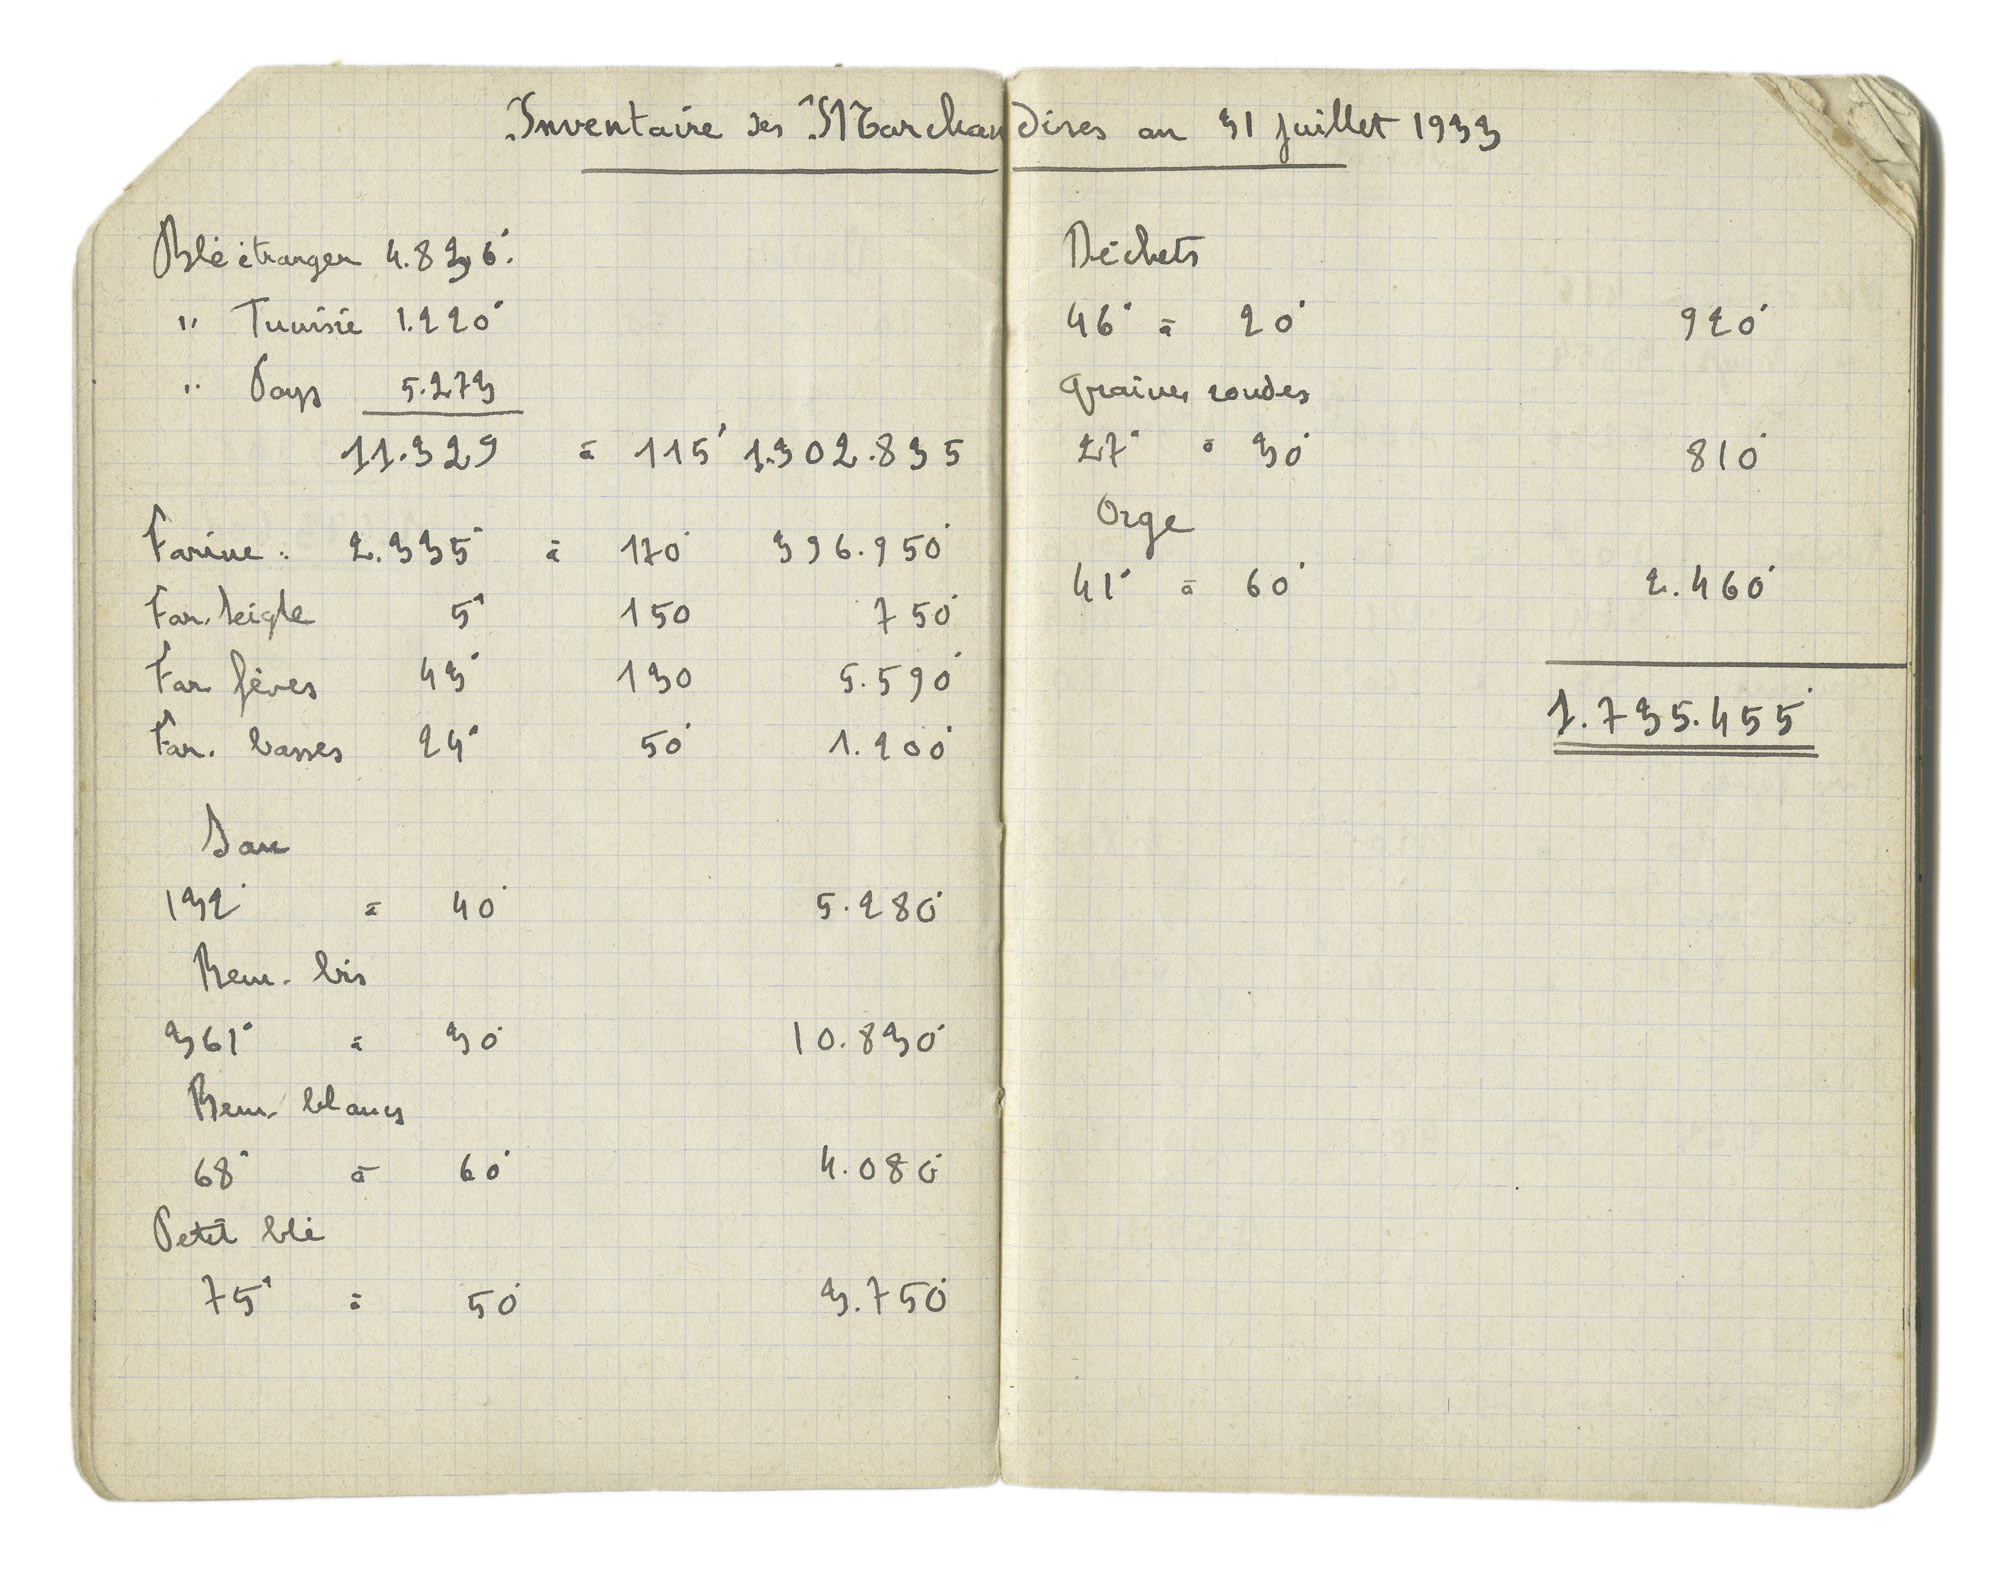 Inventaire des Marchandises au 31 juillet 1933
Blé étranger 4.836.
" Tunisie 1.220
" Pays 5.273
11.329 à 115 1.302.835
Farine : 2.335 à 170 396.950
Far. seigle 5 150 750
Far fèves 43 130 5.590
Far. basses 24 50 1.200
Son
132 à 40 5.280
Rem. bis
361 à 30 10.830
Rem. blancs
68 à 60 4.080
Petit blé
75 à 50 3.750
Déchets
46 à 20 920
Graines rondes
27 à 30 810
Orge
41 à 60 2.460
1.735.455